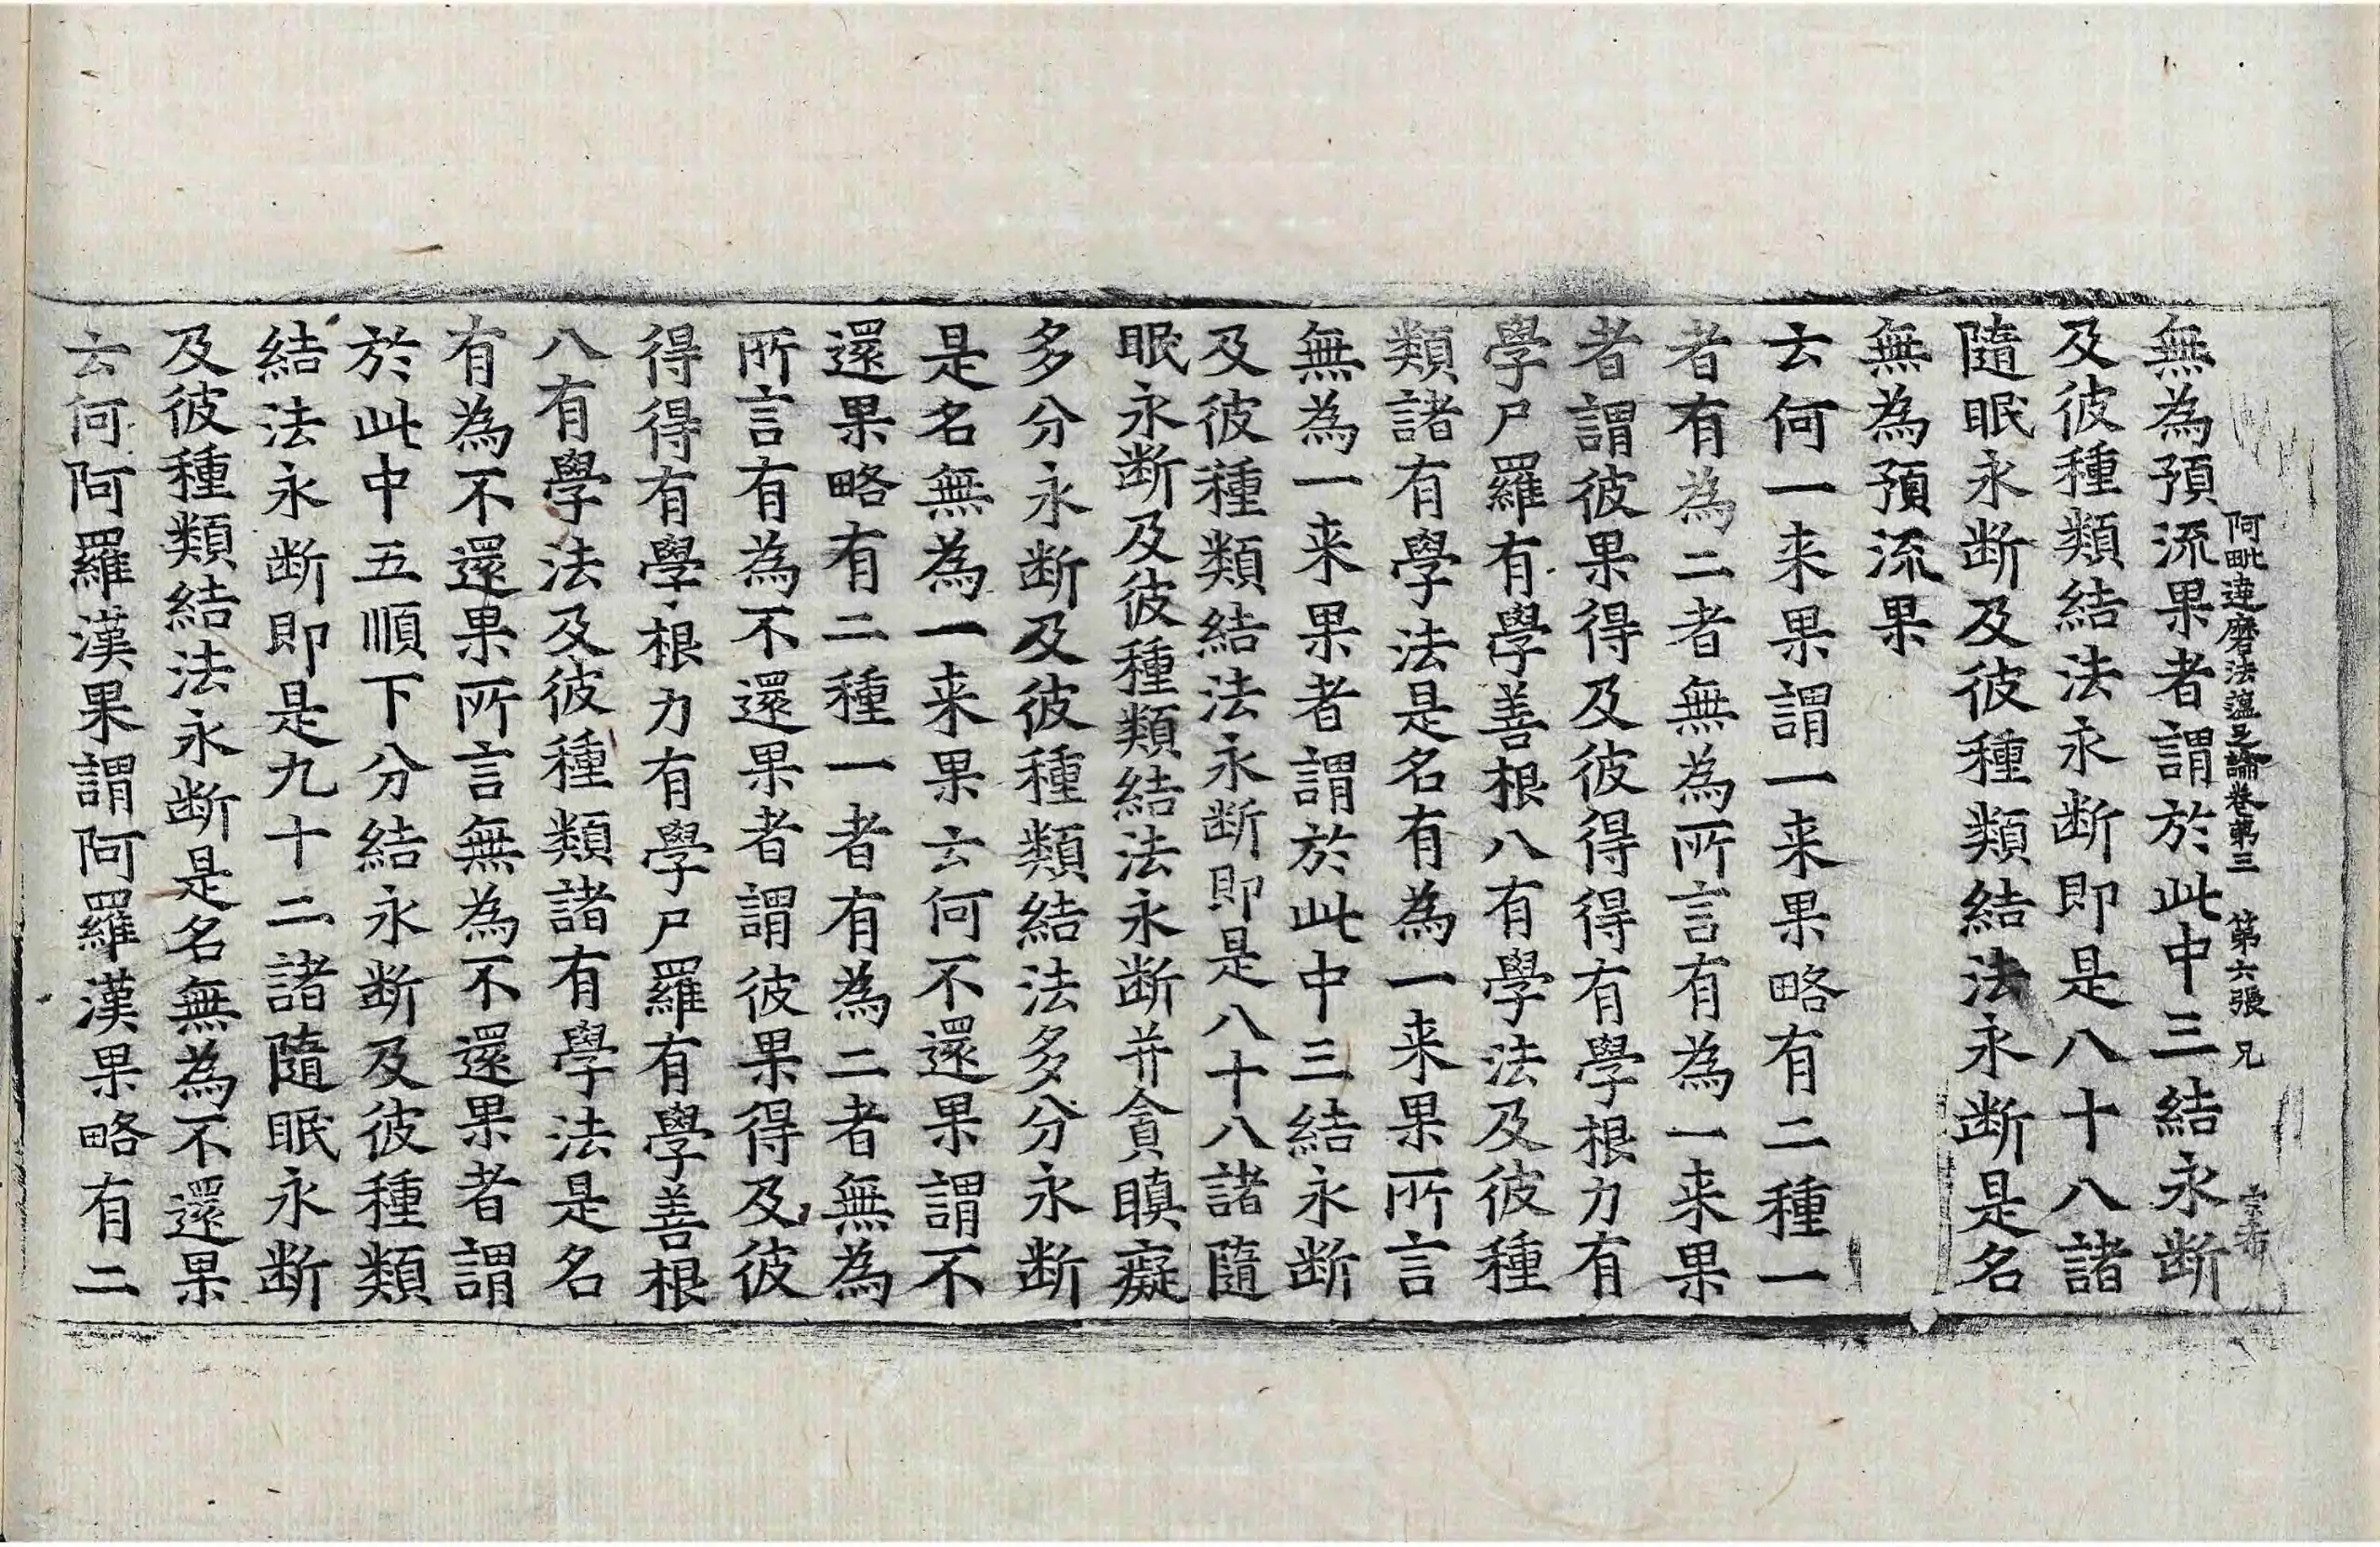 阿毗達磨法蕴足論卷第三 第六張 兄
宗布
無為預流果者謂於此中三結永断
及彼種類結法永断即是八十八諸
隨眠永断及彼種類結法永断是名
無為預流果
云何一来果謂一来果略有二種一
者有為二者無為所言有為一来果
者謂彼果得及彼得得有學根力有
學尸羅有學善根八有學法及彼種
類諸有學法是名有為一来果所言
無為一来果者謂於此中三結永断
及彼種類結法永断即是八十八諸隨
眠永断及彼種類結法永断并貪瞋癡
多分永断及彼種類結法多分永断
是名無為一来果云何不還果謂不
還果略有二種一者有為二者無為
所言有為不還果者謂彼果得及彼
得得有學根力有學尸羅有學善根
八有學法及彼種類諸有學法是名
有為不還果所言無為不還果者謂
於此中五順下分結永断及彼種類
結法永断即是九十二諸隨眠永断
及彼種類結法永断是名無為不還果
云何阿羅漢果謂阿羅漢果略有二